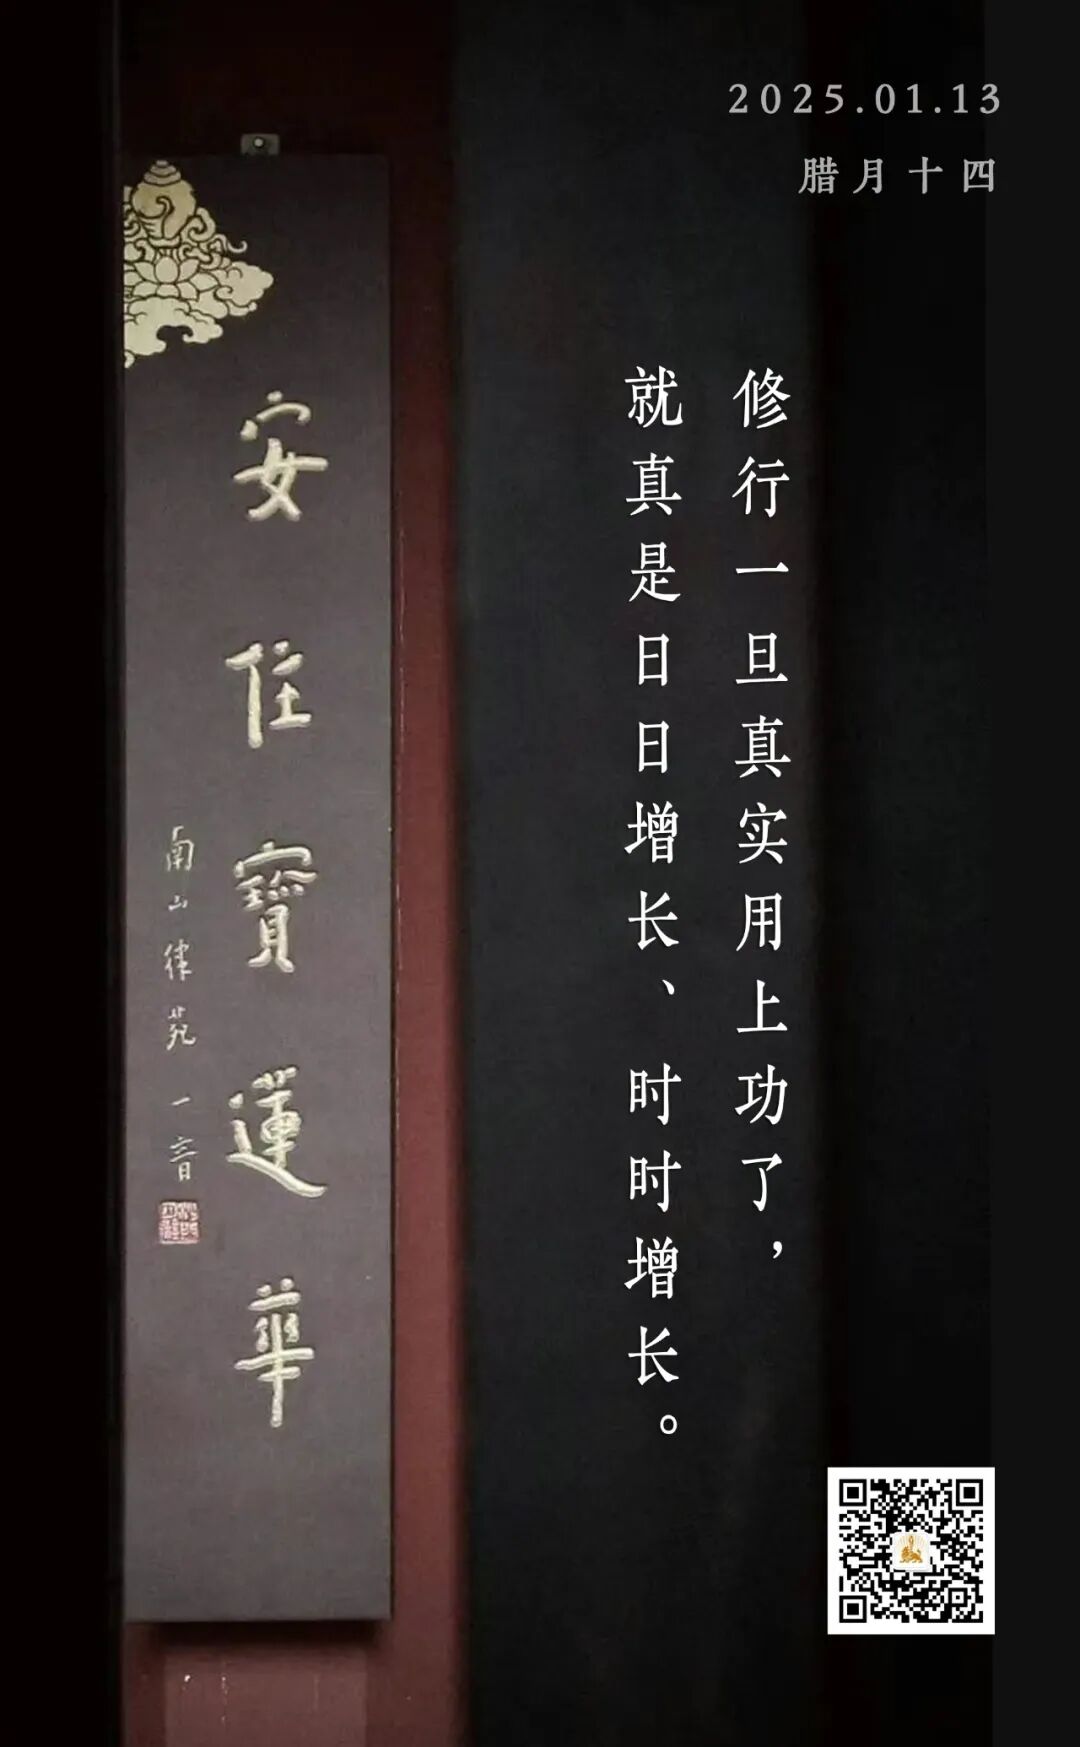 2025.01.13
腊月十四
修行一旦真实用上功了，
就真是日日增长、时时增长。
安住寶蓮華
南山律苑一音